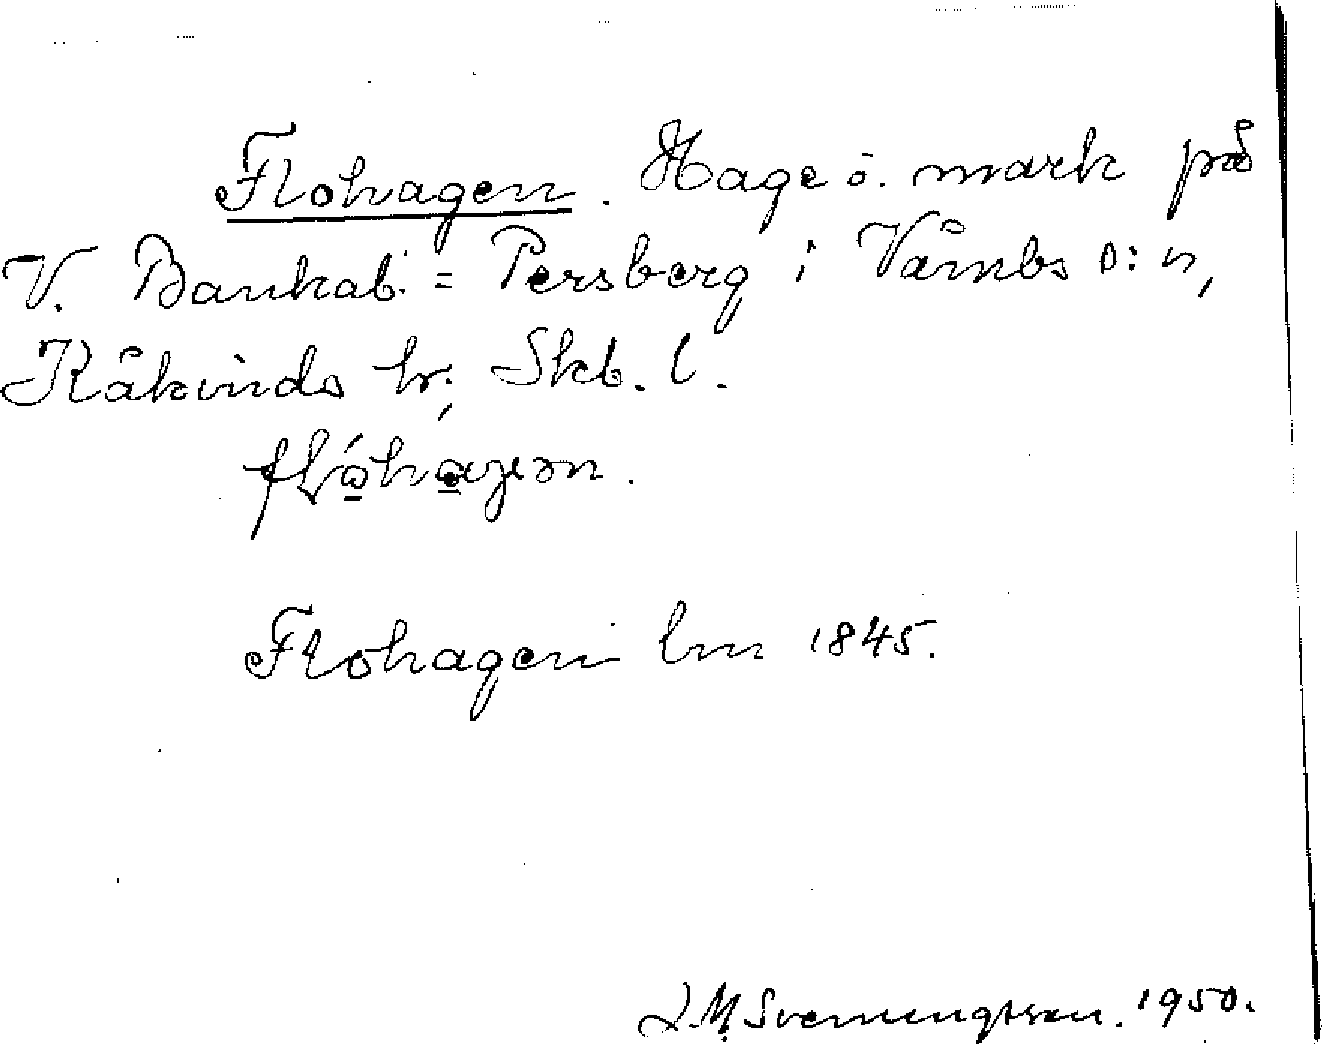 Flohagen. Hage o. mark på
V. Bankab. = Persberg i Våmbs s:n,
Kåkinds hr; Skb. l.
Flohagen lm 1845.
J. M. Svenungsson. 1950.